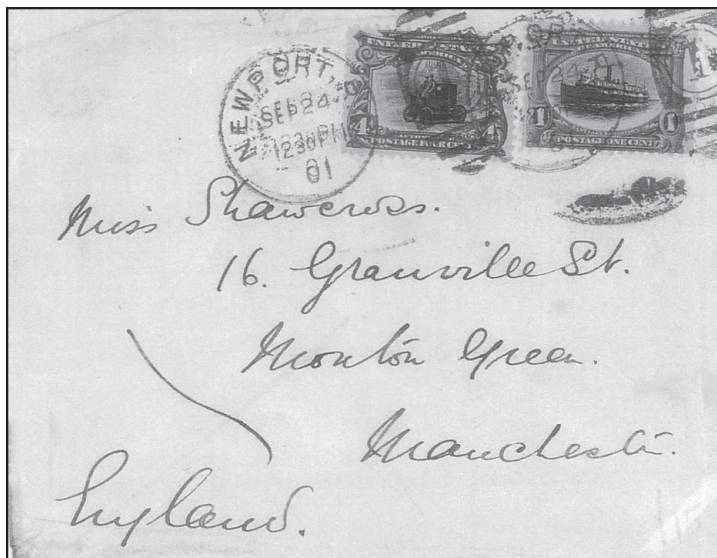 NEWPORT, R
SEP 24
12 30 PM
01
UNITED STATES
OF AMERICA
4 4
POSTAGE FOUR CENTS
SEP 24
1 1
POSTAGE ONE CENT
Miss Shawcross.
16. Granville St.
Monton Green.
Manchester.
England.